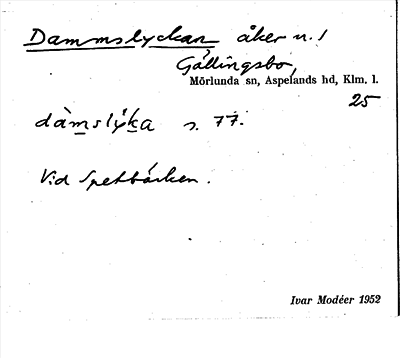 Dammslyckan åker n. 1
Gällingsbo,
Mörlunda sn, Aspelands hd, Klm. l.
25
dàmslýka s. 77.
Vid Spetbäcken.
Ivar Modéer 1952